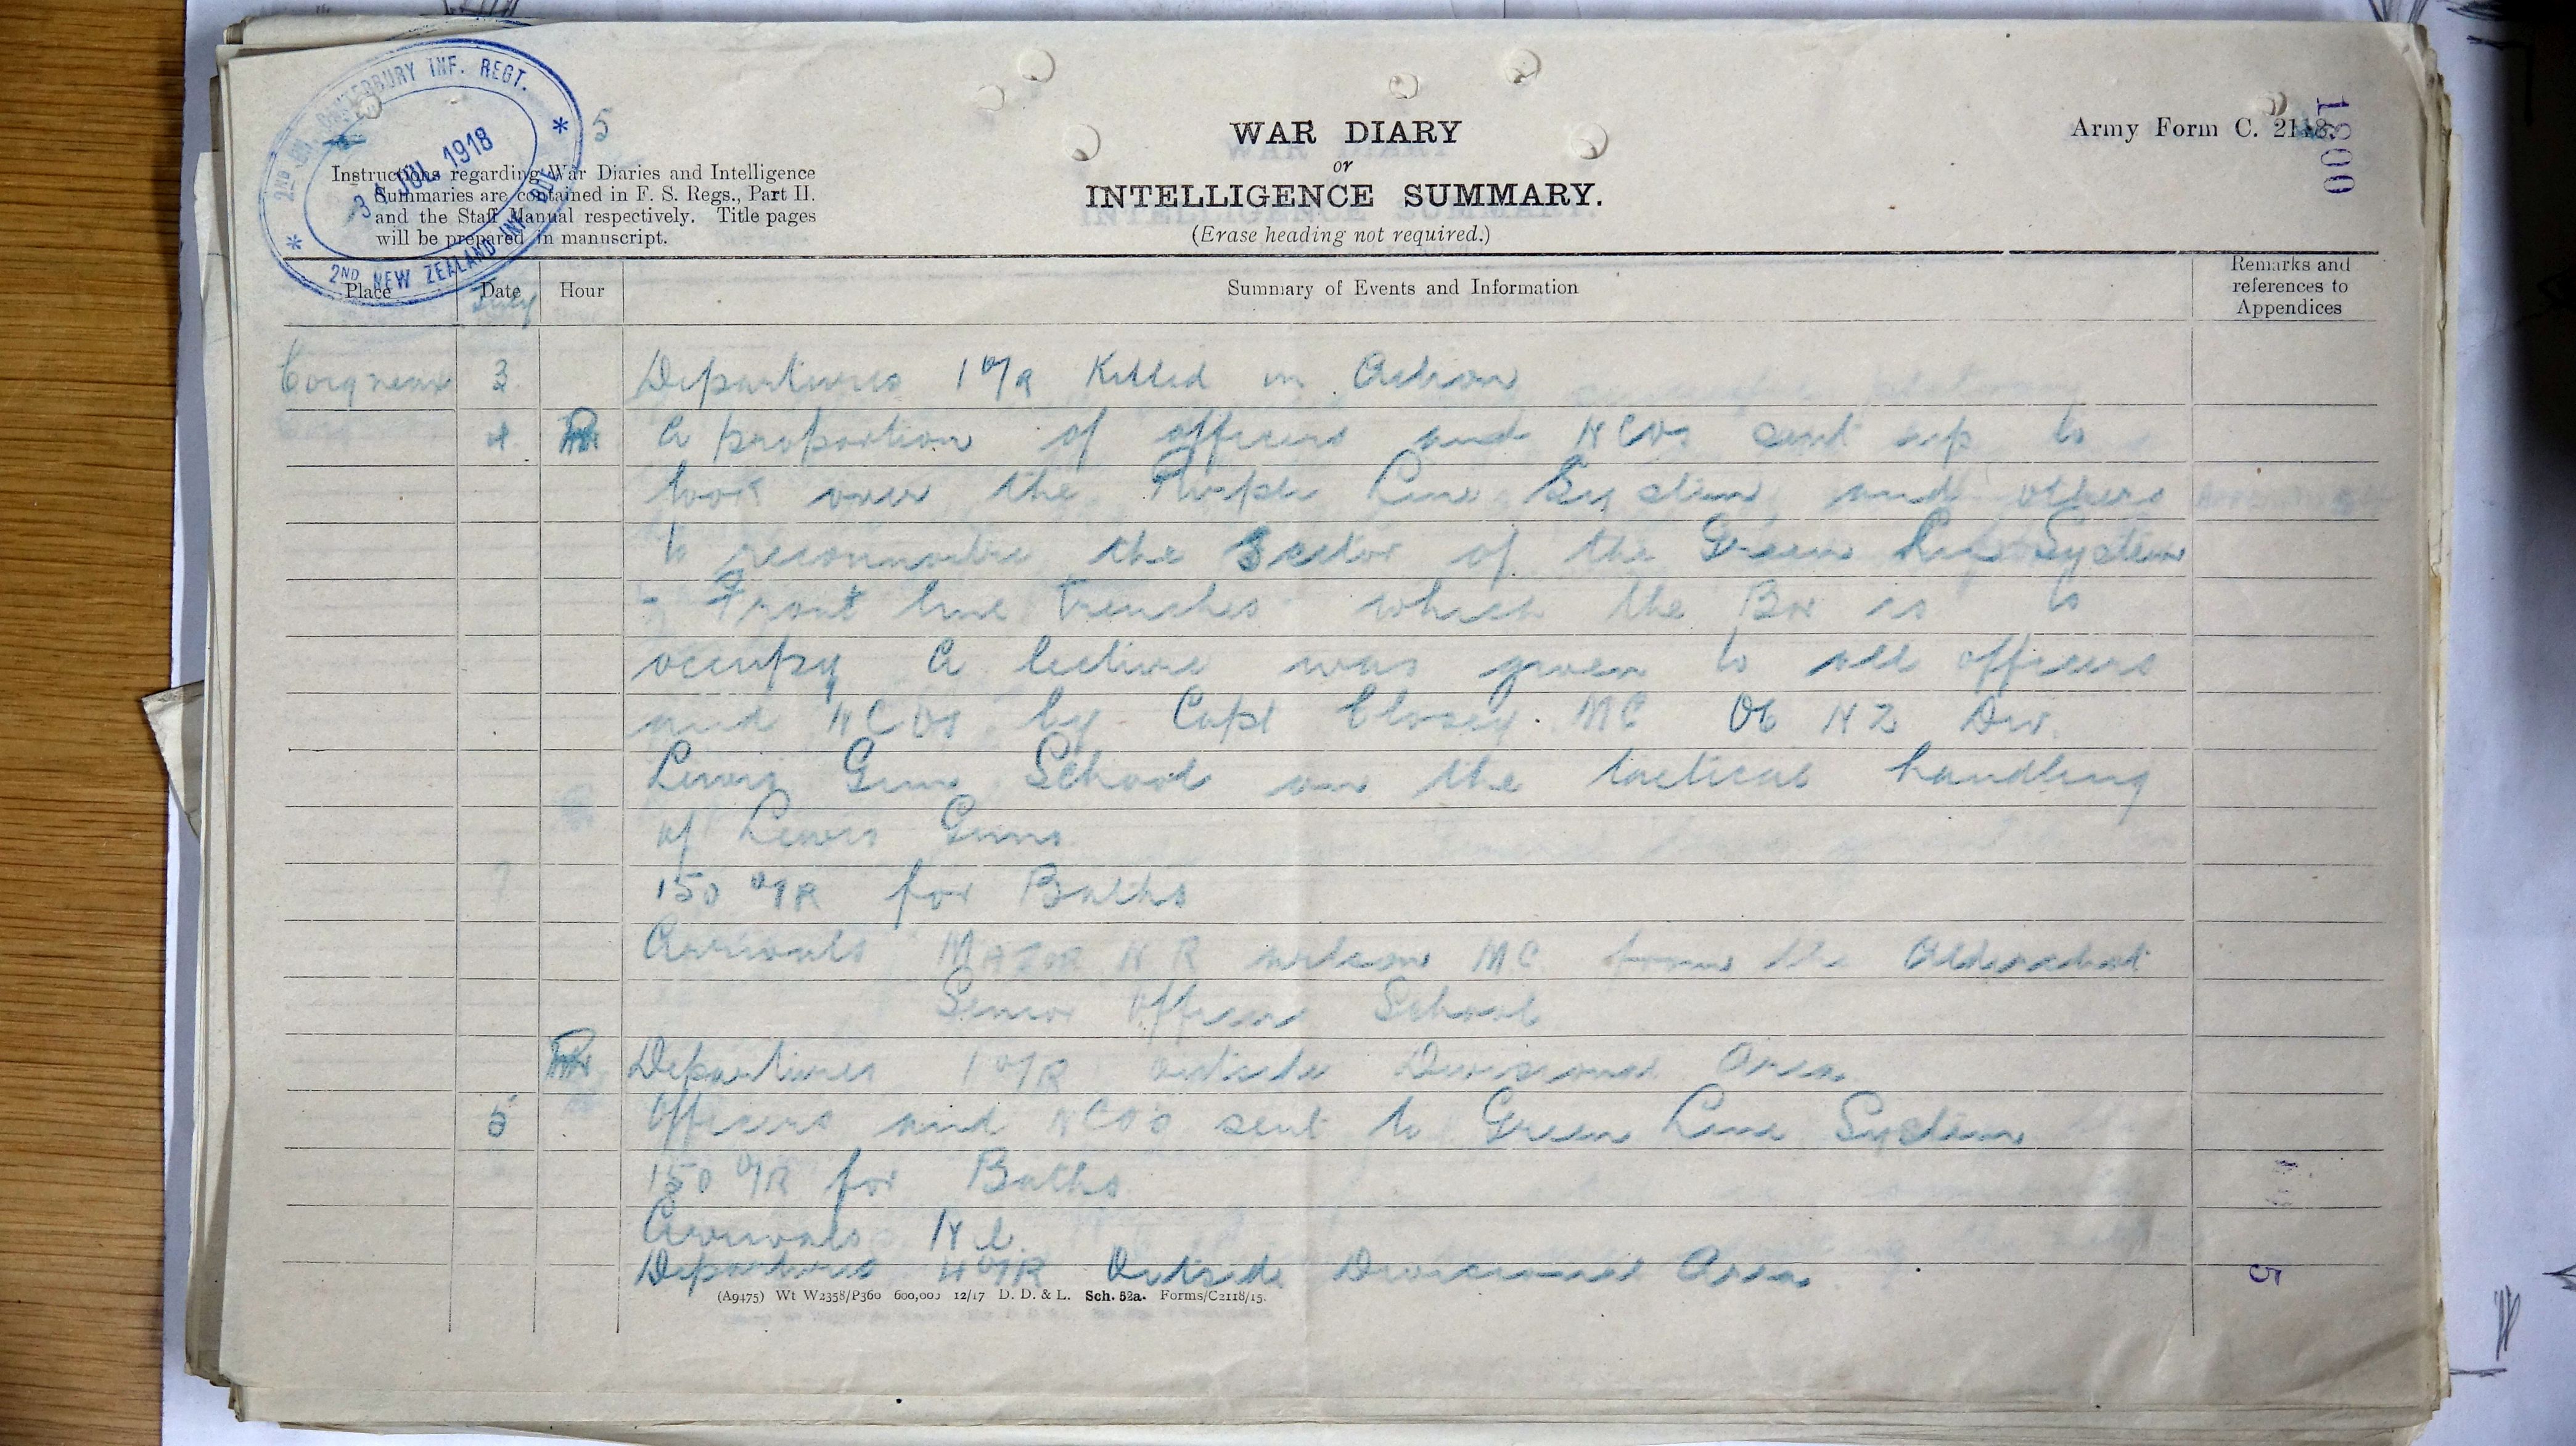 2ND BN. CANTERBURY INF. REGT.
31 JUL 1918
2ND NEW ZEALAND INF. BDE.
5
WAR DIARY
or
INTELLIGENCE SUMMARY.
(Erase heading not required.)
Army Form C. 2118.
1300
Instructions regarding War Diaries and Intelligence
Summaries are contained in F. S. Regs., Part II.
and the Staff Manual respectively. Title pages
will be prepared in manuscript.
Place Date Hour Summary of Events and Information Remarks and references to Appendices
July
Coigneux 3 Departures 1 O/R Killed in Action
4 A proportion of officers and NCOs sent up to
look over the Purple Line System and others
to reconnoitre the Sector of the Green Line System
- Front line trenches which the Bn is to
occupy A lecture was given to all officers
and NCOs by Capt Closey MC OC NZ Div.
Lewis Gun School on the tactical handling
of Lewis Guns
150 O/R for Baths
Arrivals MAJOR N R Wilson MC from the Aldershot
Senior Officers School
Departures 1 O/R outside Divisional Area
5 Officers and NCO's sent to Green Line System
150 O/R for Baths
Arrivals Nil
Departures 4 O/R Outside Divisional Area
(A9475) Wt W2358/P360 600,000 12/17 D. D. & L. Sch. 52a. Forms/C2118/15.
5